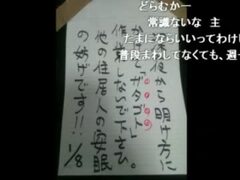 どらむかー
常識ないな 主
たまにならいいってわけじ
普段まわしてなくても、週一
深夜から明け方に
かけて「ガタゴト」
しないで下さい。
他の住居人の安眠
の妨げです!!! 1/8